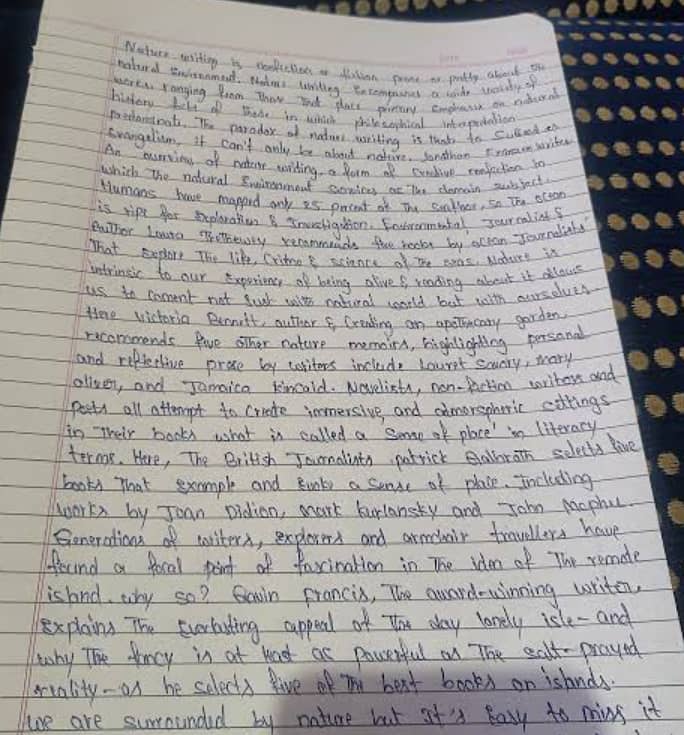 Nature writing is nonfiction or fiction prose or poetry about the
natural Environment. Nature writing Encompasses a wide variety of
works, ranging from those that place primary Emphasis on natural
history facts of those in which philosophical interpretation
predominate. The paradox of nature writing is that, to Succeed as
Evangelism, it can't only be about nature. Jonathan Franzen writes
An overview of nature writing, a form of Creative nonfiction in
which the natural Environment Services as the domain Subject.
Humans have mapped only 25 percent of The Seafloor, So The ocean
is ripe for Exploration & Investigation. Environmental Journalist &
author Laura Trethewey recommends five books by ocean Journalists
That Explore The life, Crime & science of The seas. Nature is
intrinsic to our Experience of being alive & reading about it allows
us to connect not Just with natural world but with ourselves
Here Victoria Bennett, author & Creating an apothecary garden,
recommends five other nature memoirs, highlighting personal
and reflective prose by writers include Lauret Savoy, Mary
oliver, and Jamaica kincaid. Novelists, non-fiction writers and
Poets all attempt to Create immersive and atmospheric settings
in Their books what is called a Sense of place' in literary
terms. Here, The British Journalists patrick Galbraith selects five
books That Example and Evoke a Sense of place. Including
works by Joan Didion, Mark kurlansky and John Mcphee.
Generations of writers, explorers and armchair travellers have
found a focal point of fascination in The idea of The remote
island. why so? Gavin francis, The award-winning writer,
Explains The Everlasting appeal of The day lonely isle - and
why The fancy is at least as powerful as The salt-prayed
reality - as he selects five of The best books on islands.
We are surrounded by nature but It's Easy to miss it